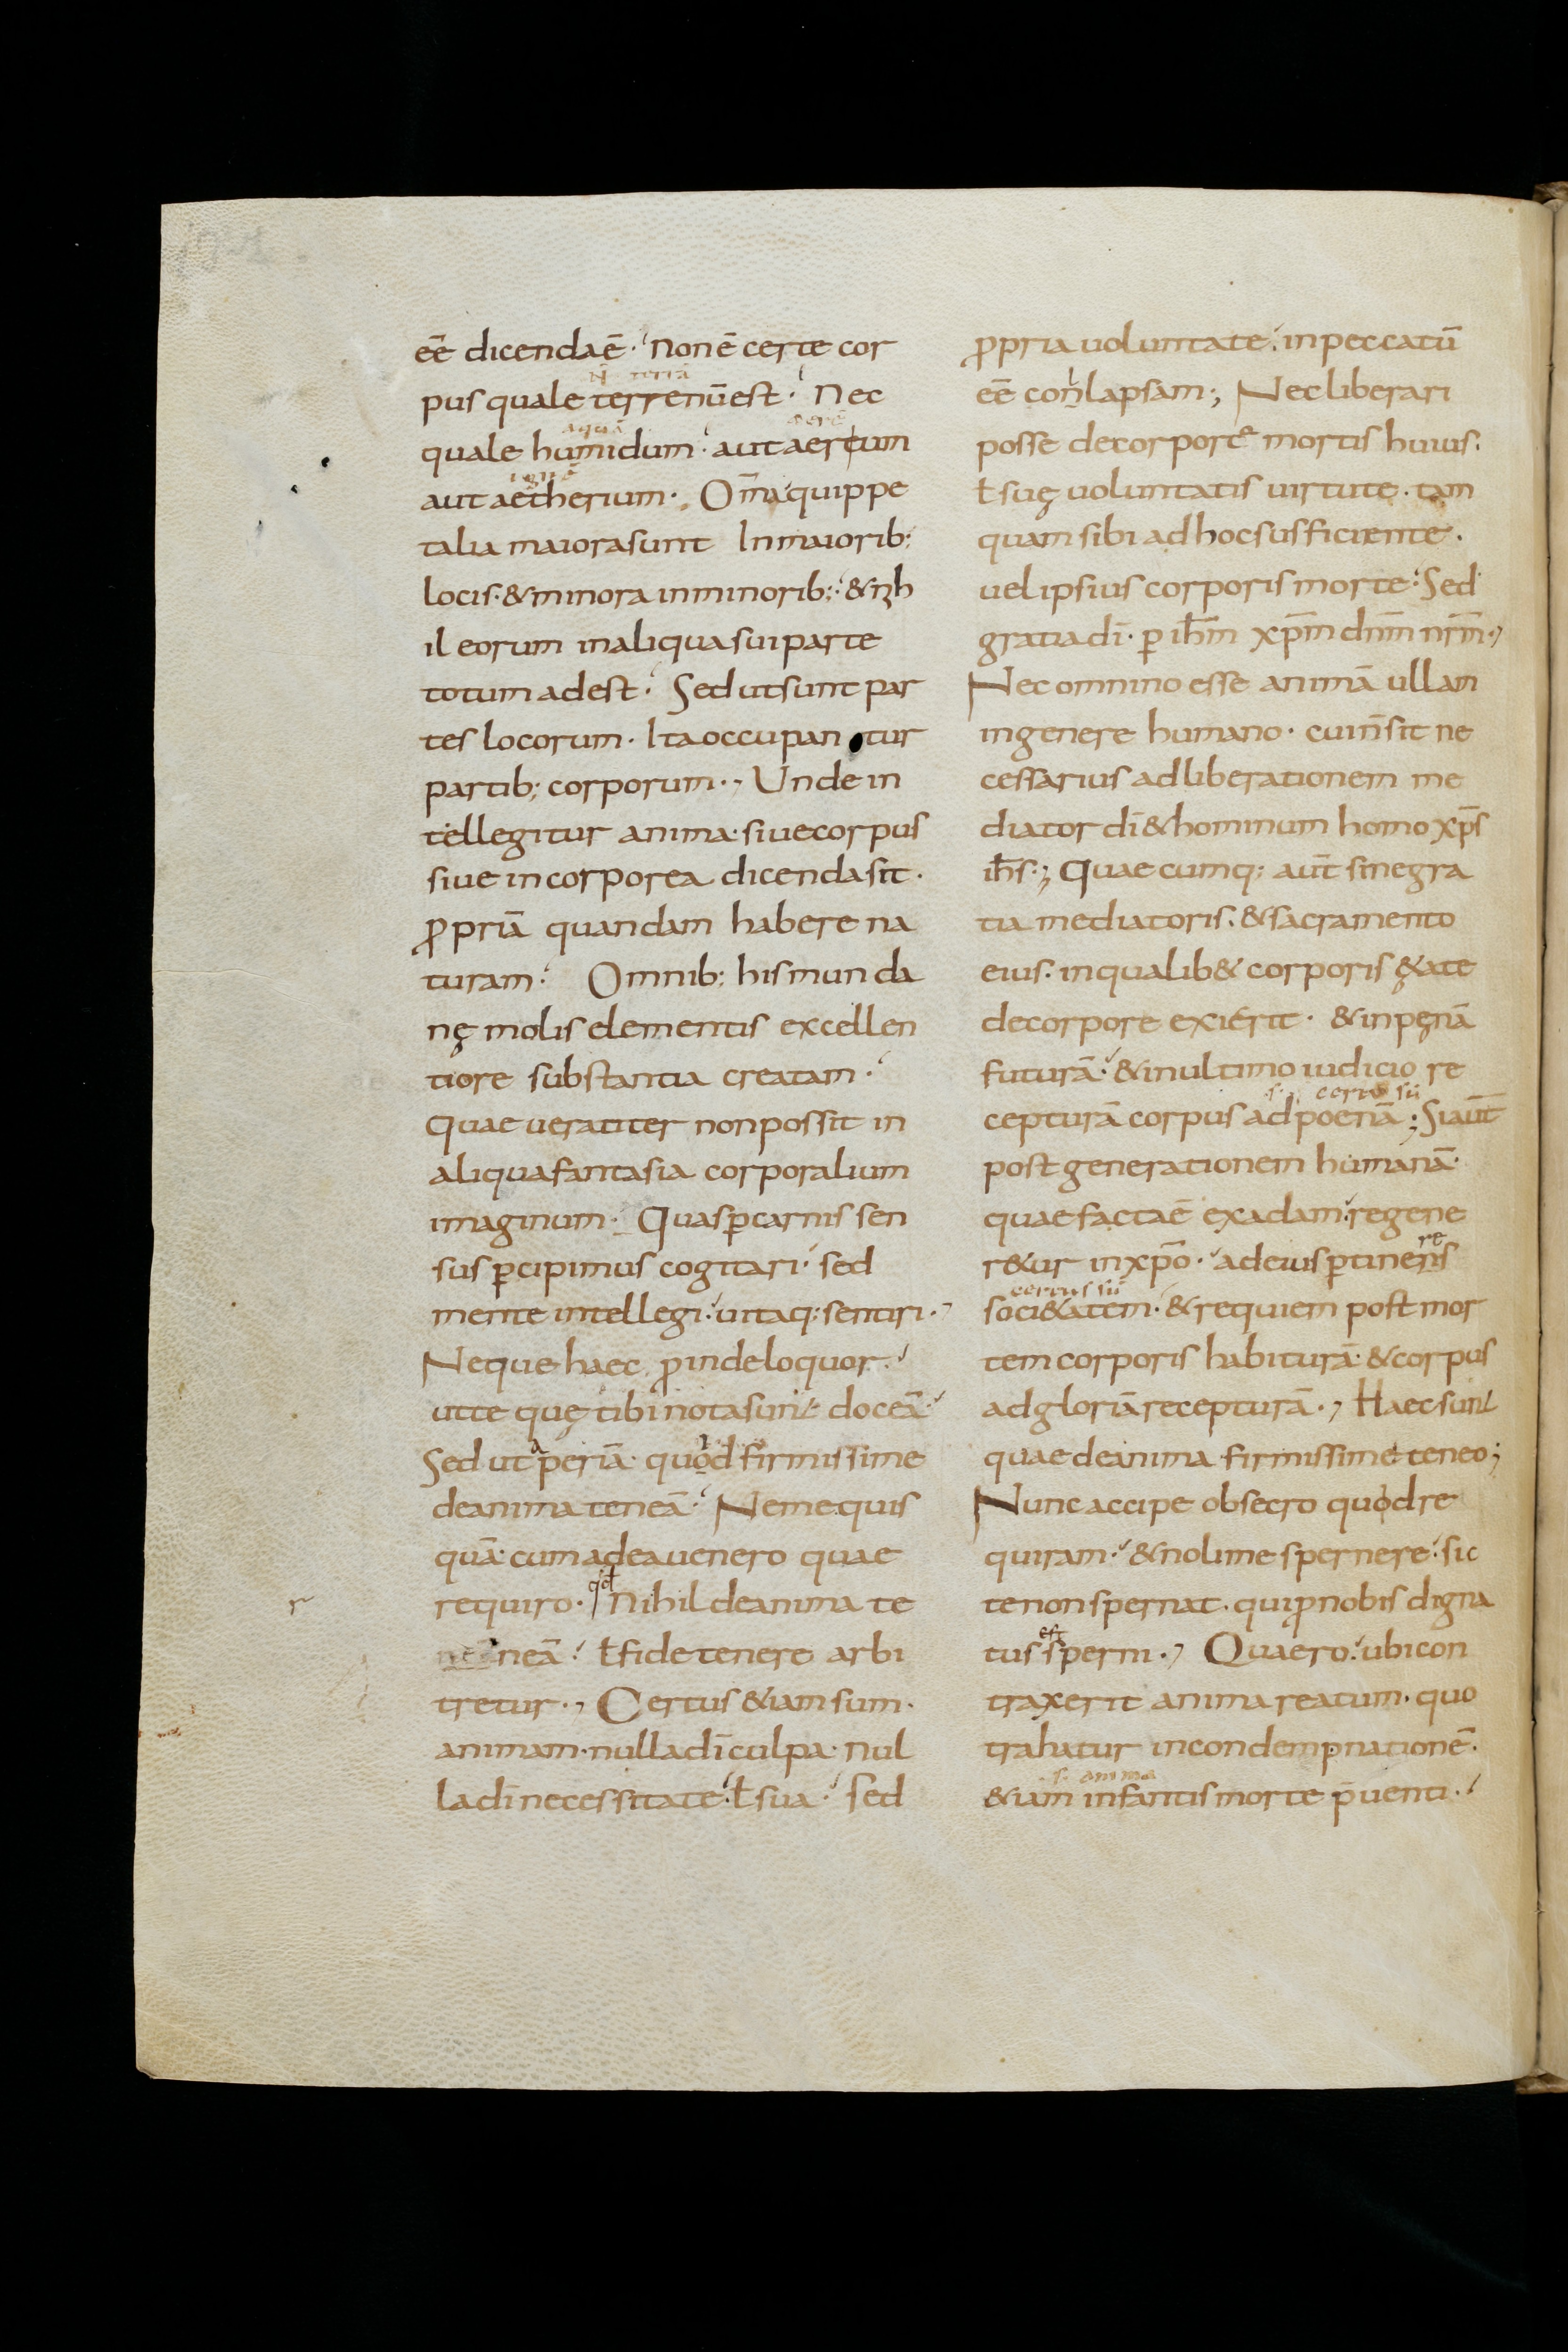 eē dicenda ē· non ē certe cor
pus quale terrenū est· Nec
quale humidum· aut aerium
aut aetherium· Om̄a quippe
talia maiora sunt In maiorib;
locis· & minora in minorib;· & nih
il eorum in aliqua sui parte
totum adest· Sed ut sunt par
tes locorum· Ita occupan tur
partib; corporum·, Unde in
tellegitur anima· siue corpus
siue incorporea dicenda sit·
ꝓpriā quandam habere na
turam· Omnib; his munda
nę molis elementis excellen
tiore substantia creatam·
Quae ueraciter non possit in
aliqua fantasia corporalium
imaginum· Quas ꝑ carnis sen
sus ꝑcipimus cogitari· sed
mente intellegi· uitaq; sentiri·,
Neque haec ꝓinde loquor·
ut te quę tibi nota sunt doceā·
Sed ut aperiā· quod firmissime
de anima teneā· Ne me quis
quā· cum ad ea uenero quae
requiro· qd Nihil de anima te
neā· ł fide tenere arbi
tretur·, Certus &iam sum·
animam· nulla dī culpa· nul
la dī necessitate· ł sua· sed
ꝓpria uoluntate· in peccatū
eē conlapsam·; Nec liberari
posse de corporte mortis huius·
ł suę uoluntatis uirtute· tam
quam sibi ad hoc sufficiente·
uel ipsius corporis morte· Sed
gratia dī· ꝑ ih̄m xp̄m dn̄m nr̄m·,
Nec omnino esse animā ullam
in genere humano· cui n̄ sit ne
cessarius ad liberationem me
diator dī & hominum homo xp̄s
ih̄s·; Quaecumq; aut̄ sine gra
tia mediatoris· & sacramento
eius· in qualib& corporis &ate
de corpore exierit· & in pęnā
futurā· & in ultimo iudicio re
s. certus sū
cepturā corpus ad poenā·; Si aut̄
post generationem humanā·
quae facta ē ex adam· regene
r&ur in xp̄o· ad eius ꝑtinens
certus sū
soci&atem· & requiem post mor
tem corporis habiturā· & corpus
ad gloriā recepturā·, Haec sunt
quae de anima firmissime teneo;
Nunc accipe obsecro quod re
quiram· & noli me spernere· sic
te non spernat· qui ꝓ nobis digna
tus est sperni·, Quaero· ubi con
traxerit anima reatum· quo
trahatur in condempnationē·
s. anima
&iam infantis morte p̄uenti·